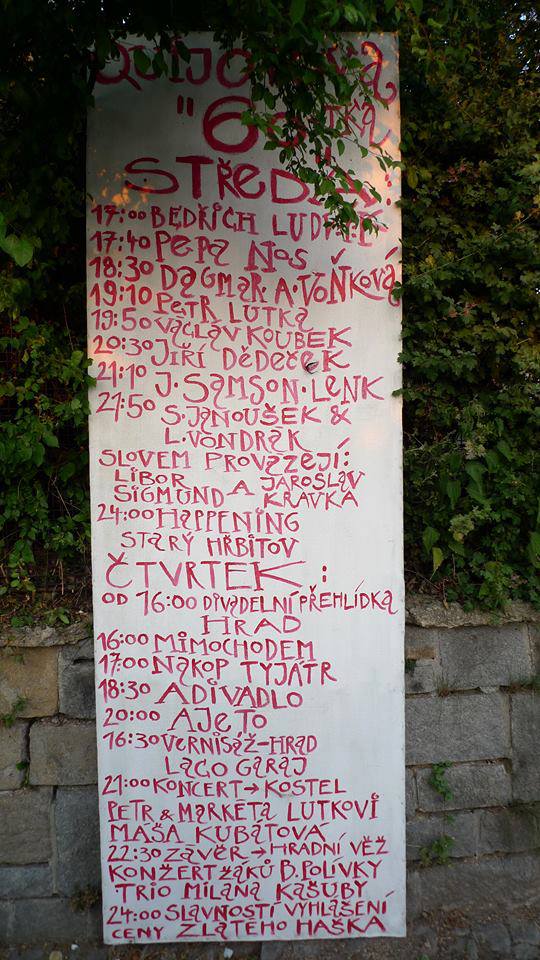 "60
STŘEDA:
17:00 BEDŘICH LUDVÍK
17:40 PEPA NOS
18:30 DAGMAR A. VOŇKOVÁ
19:10 PETR LUTKA
19:50 VÁCLAV KOUBEK
20:30 JIŘÍ DĚDEČEK
21:10 J. SAMSON. LENK
21:50 S. JANOUŠEK &
L. VONDRÁK
SLOVEM PROVÁZEJÍ:
LIBOR A JAROSLAV
SIGMUND KRAVKA
24:00 HAPPENING
STARÝ HŘBITOV
ČTVRTEK:
OD 16:00 DIVADELNÍ PŘEHLÍDKA
HRAD
16:00 MIMOCHODEM
17:00 NÁKOP TYJÁTR
18:30 ADIVADLO
20:00 AJETO
16:30 VERNISÁŽ-HRAD
LAGO GARAJ
21:00 KONCERT → KOSTEL
PETR & MARKÉTA LUTKOVI
MÁŠA KUBÁTOVÁ
22:30 ZÁVĚR → HRADNÍ VĚŽ
KONZERT ŽÁKŮ B. POLÍVKY
TRIO MILANA KAŠUBY
24:00 SLAVNOSTÍ VYHLÁŠENÍ
CENY ZLATÉHO HAŠKA